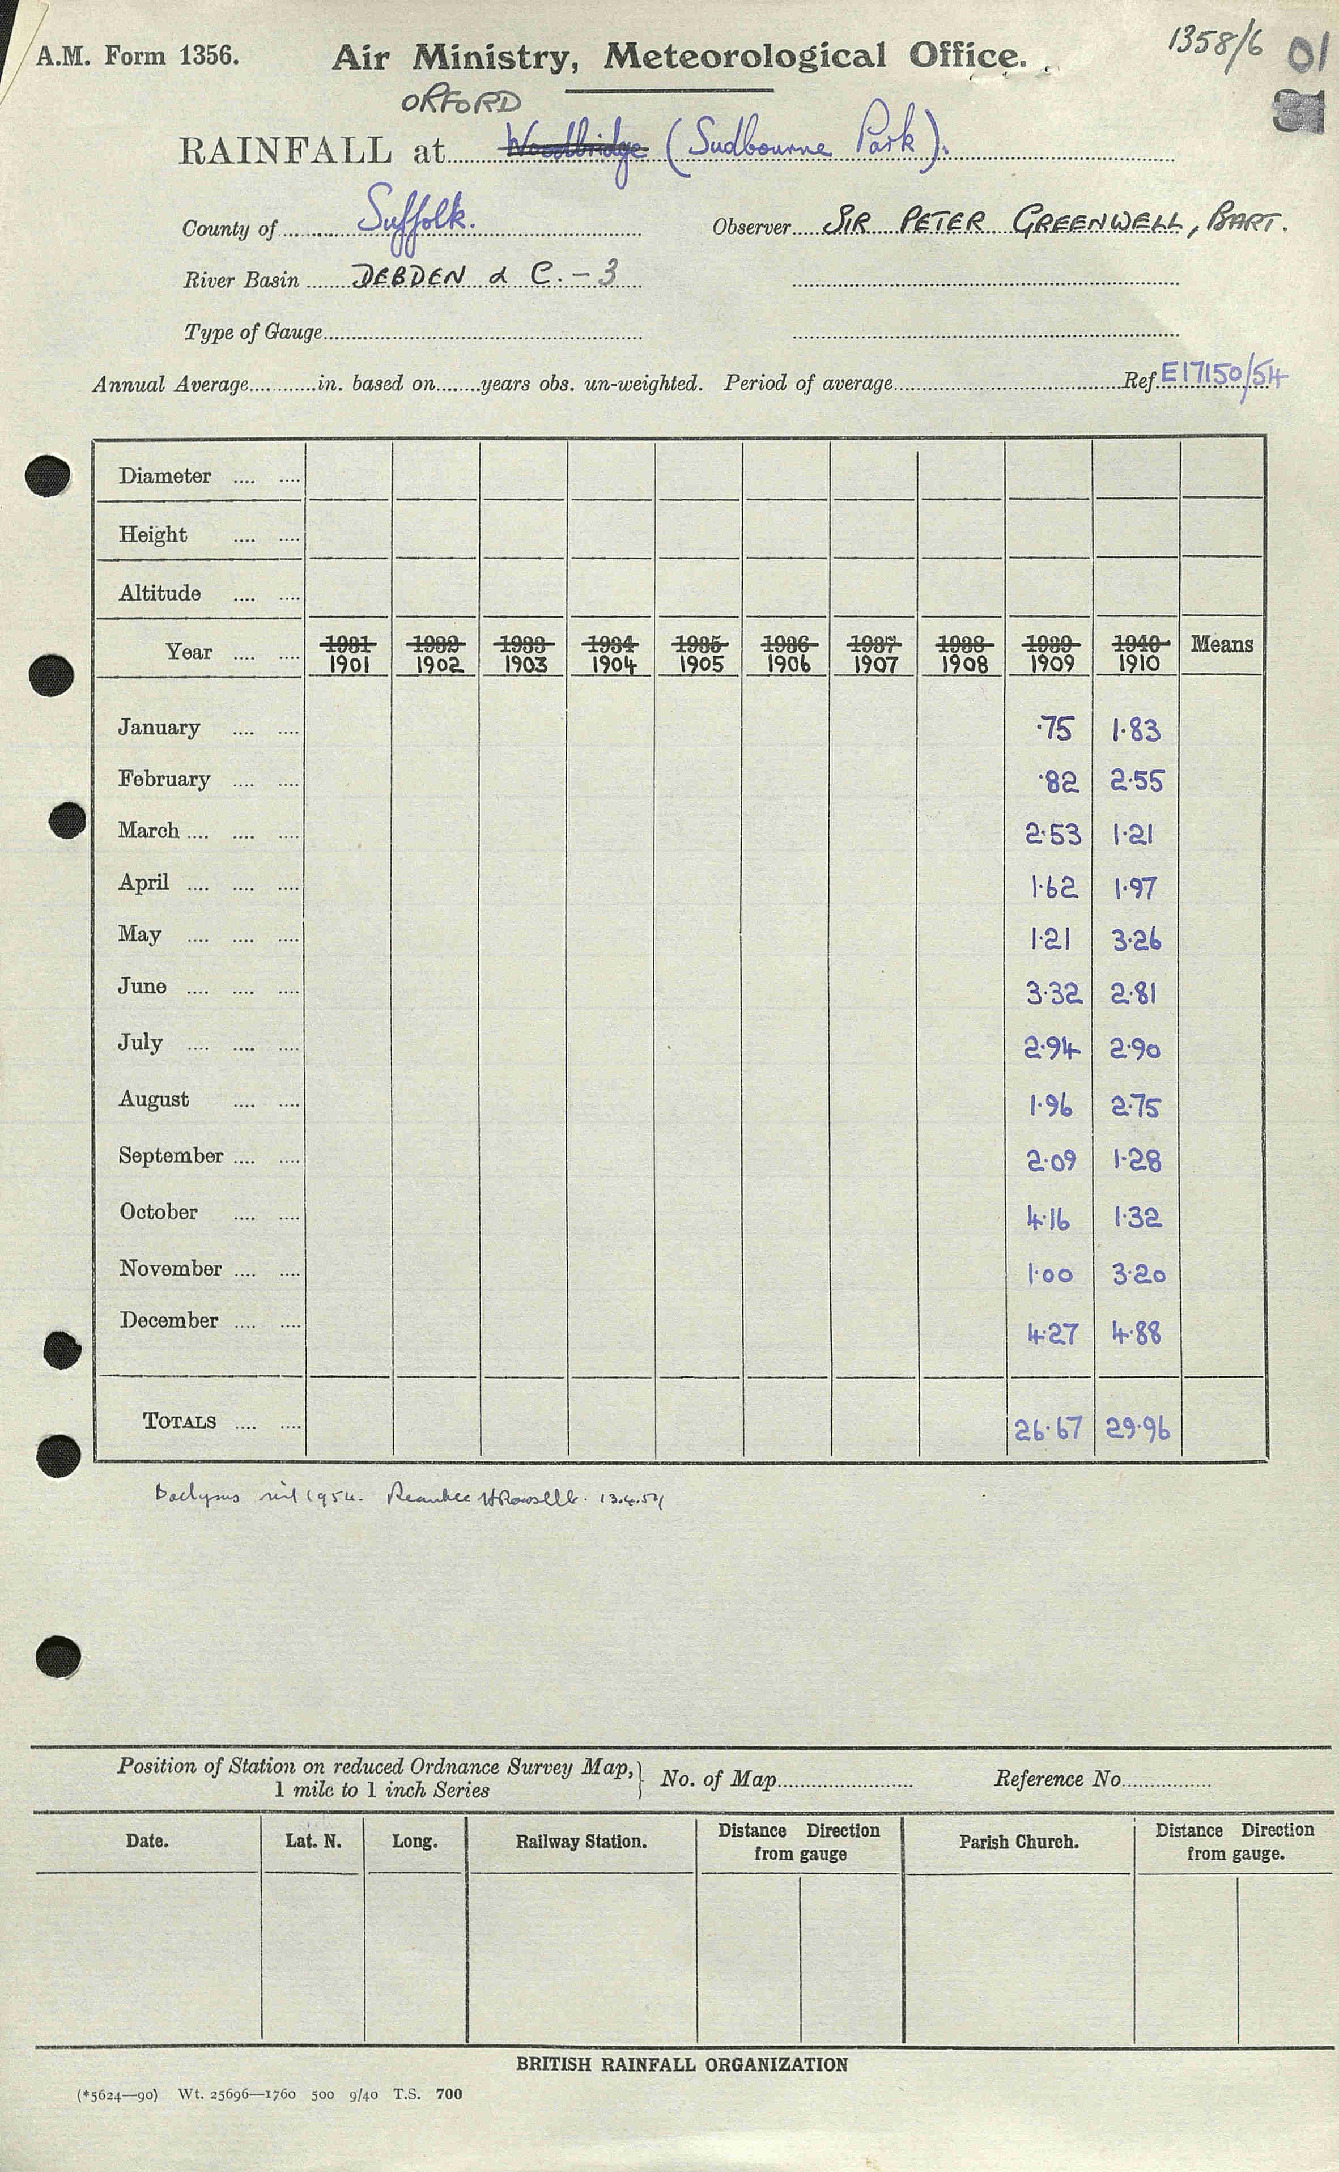 A.M. Form 1356. Air Ministry, Meteorological Office. 1358/6 01
ORFORD
RAINFALL at Woodbridge (Sudbourne Park).
County of Suffolk. Observer SIR PETER GREENWELL, BART.
River Basin DEBDEN & C. - 3
Type of Gauge
Annual Average in. based on years obs. un-weighted. Period of average Ref. E17150/54
Diameter
Height
Altitude
Year 1931 1932 1933 1934 1935 1936 1937 1938 1939 1940 Means
1901 1902 1903 1904 1905 1906 1907 1908 1909 1910
January ·75 1·83
February ·82 2·55
March 2·53 1·21
April 1·62 1·97
May 1·21 3·26
June 3·32 2·81
July 2·94 2·90
August 1·96 2·75
September 2·09 1·28
October 4·16 1·32
November 1·00 3·20
December 4·27 4·88
TOTALS 26·67 29·96
1954. 13.4.54
Position of Station on reduced Ordnance Survey Map, } No. of Map Reference No.
1 mile to 1 inch Series
Date. Lat. N. Long. Railway Station. Distance Direction from gauge Parish Church. Distance Direction from gauge.
BRITISH RAINFALL ORGANIZATION
(*5624—90) Wt. 25696—1760 500 9/40 T.S. 700